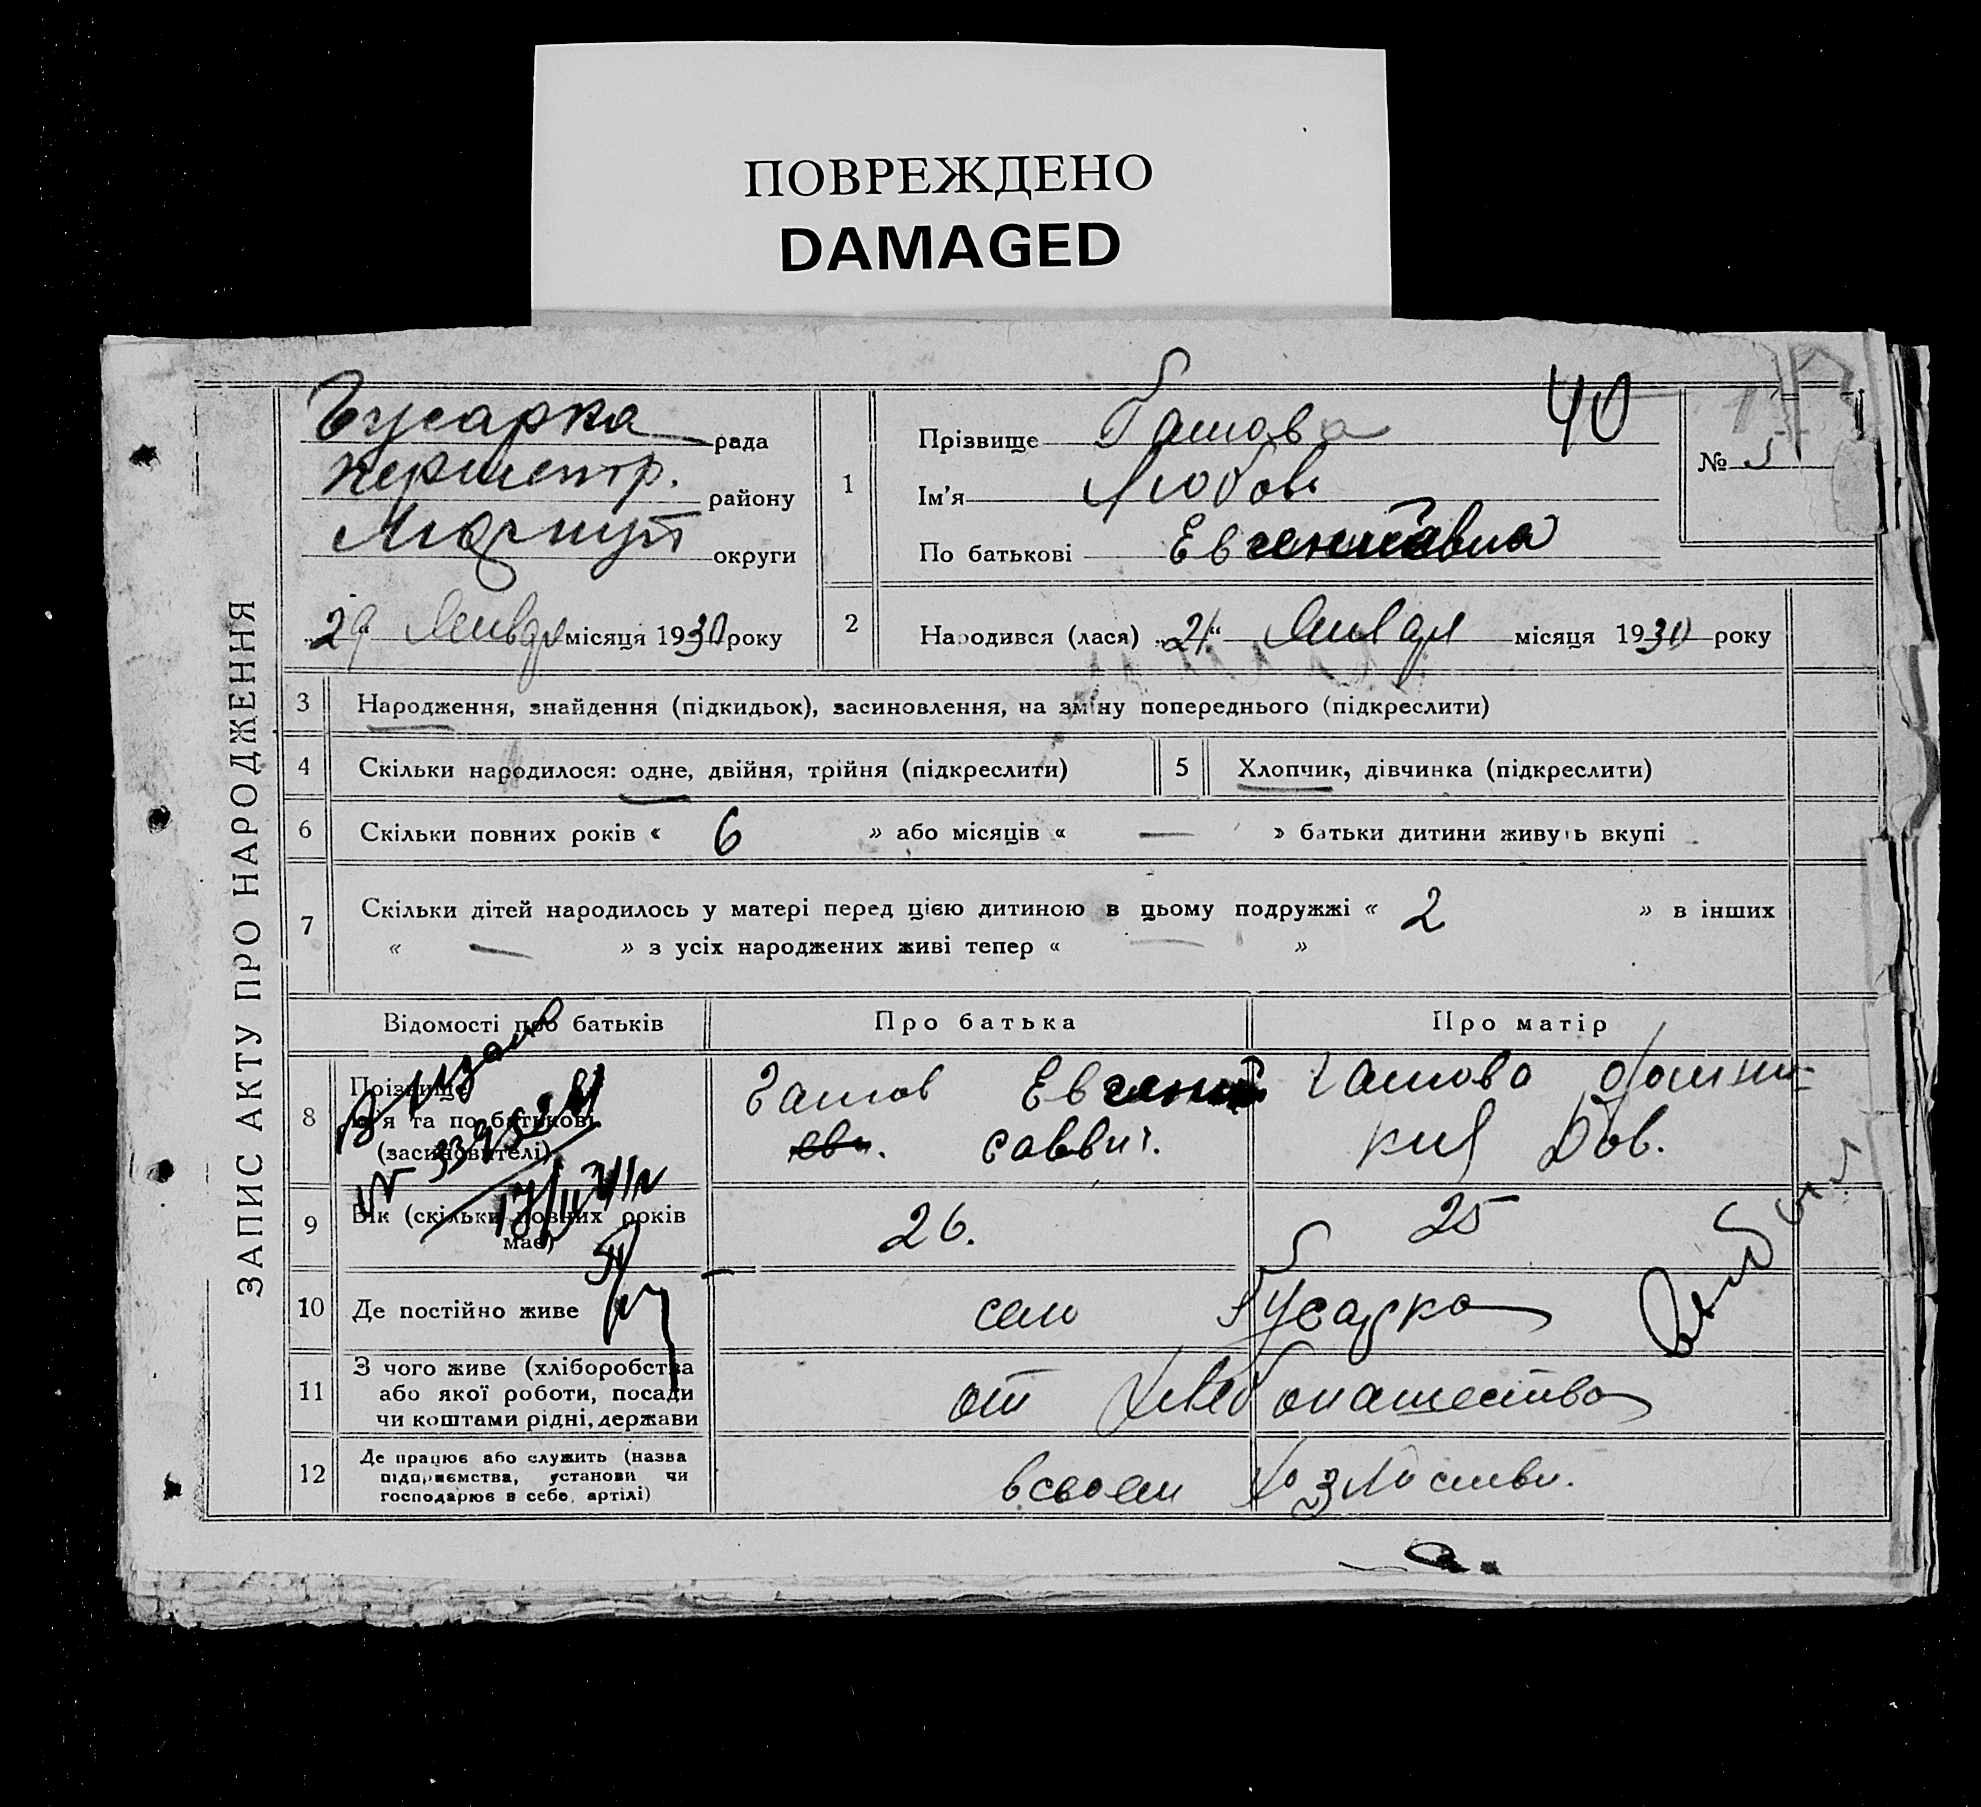 ПОВРЕЖДЕНО
DAMAGED
ЗАПИС АКТУ ПРО НАРОДЖЕННЯ
Гусарка рада
району
округи
29 Января місяця 1930 року
1
Прізвище Гашова
Ім'я Любовь
По батькові Евгениевна
40
№ 5
2
Народився (лася) „21“ Января місяця 1930 року
3 Народження, знайдення (підкидьок), засиновлення, на зміну попереднього (підкреслити)
4 Скільки народилося: одне, двійня, трійня (підкреслити)
5 Хлопчик, дівчинка (підкреслити)
6 Скільки повних років « 6 » або місяців « — » батьки дитини живуть вкупі
7 Скільки дітей народилось у матері перед цією дитиною в цьому подружжі « 2 » в інших
« — » з усіх народжених живі тепер « — »
Відомості про батьків Про батька Про матір
8 Прізвище
ім'я та по батькові
(засиновителі)
Гашов Евгений
савви.
Гашова
9 Вік (скільки повних років
має)
26. 25
10 Де постійно живе село Гусарка
11 З чого живе (хліборобства
або якої роботи, посади
чи коштами рідні, держави
от хлебопашества
12 Де працює або служить (назва
підприємства, установи чи
господарює в себе, артілі)
в своем хозяйстве.